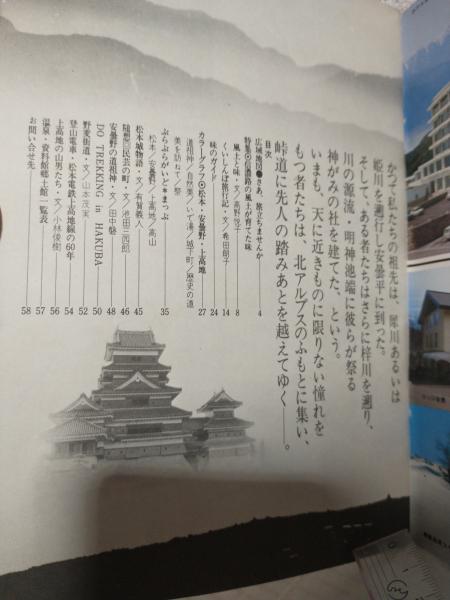 かつて私たちの祖先は、犀川あるいは
姫川を遡行し安曇平に到った。
そして、ある者たちはさらに梓川を遡り、
川の源流・明神池端に彼らが祭る
神がみの杜を建てた、という。
いまも、天に近きものに限りない憧れを
もつ者たちは、北アルプスのふもとに集い、
峠道に先人の踏みあとを越えてゆく——。
目次
広域地図●さあ、旅立ちませんか 4
特集◎信濃路の風土が育てた味
風土と味・文/高野悦子 8
くいしんぼ旅日記・文/希田朗子 14
味のガイド 24
カラーグラフ◎松本・安曇野・上高地 27
道祖神/自然美/いで湯/城下町/歴史の道
美を訪ねて/祭
ぶらぶらがいど★まっぷ 35
松本/安曇野/上高地/高山
松本城物語・文/有賀義 45
随想□民芸の町・文/池田三四郎 46
安曇野の道祖神・文/田中磐 48
DO TREKKING in HAKUBA 50
野麦街道・文/山本茂実 52
登山電車・松本電鉄上高地線の60年 54
上高地の山男たち・文/小林俊樹 56
温泉・資料館郷土館一覧表 57
お問い合せ先 58